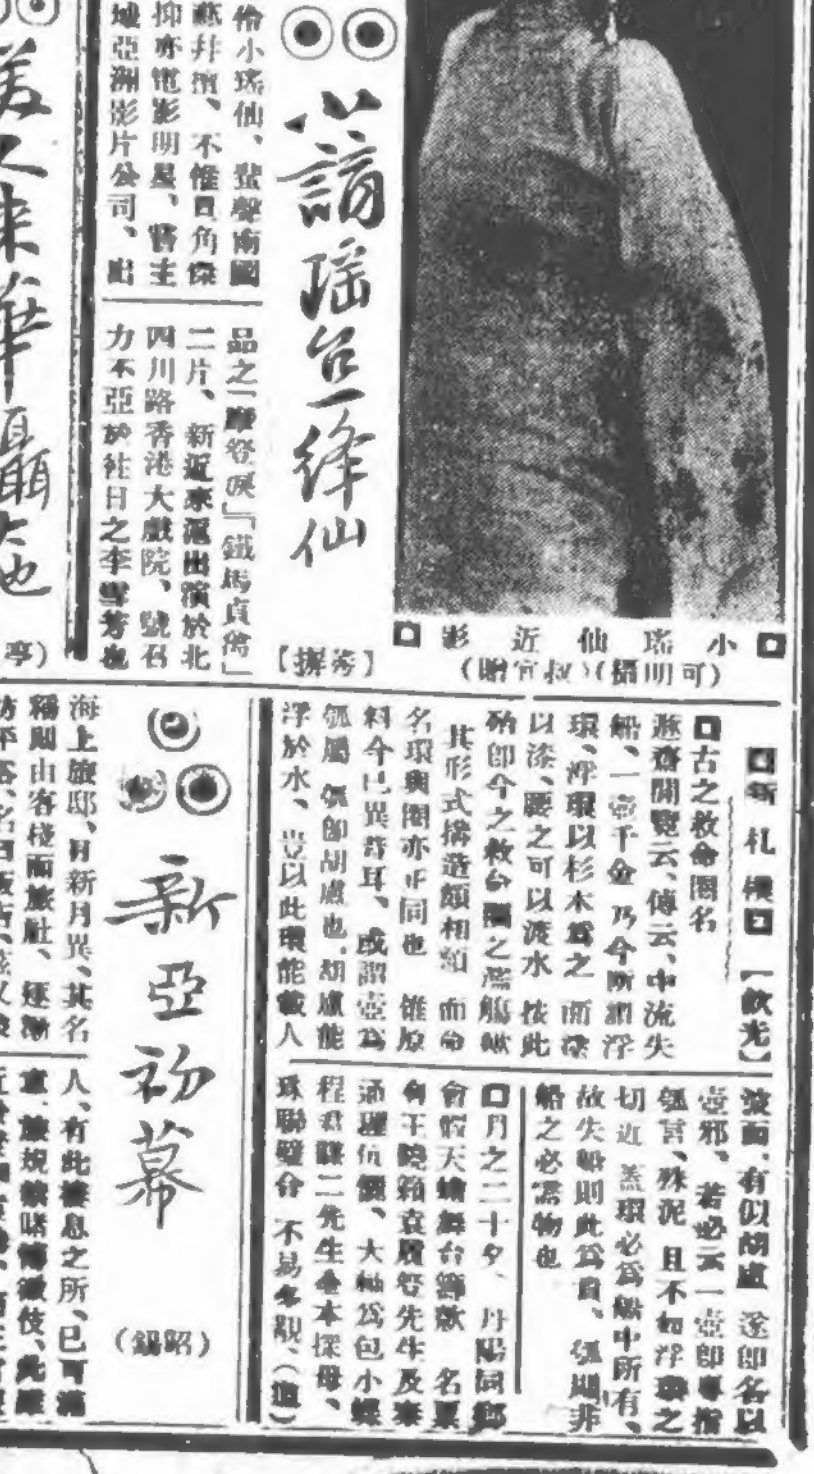 小瑤仙近影
(可明攝)(叔宜贈)
心謁瑤台一絳仙
【秀撰】
伶小瑤仙、蜚聲南國
蘇井擅、不惟目角傑
抑亦電影明星、嘗主
域亞洲影片公司、出
品之「摩登淚」「鐵馬貞禽」
二片、新近來滬出演於北
四川路香港大戲院、號召
力不亞於往日之李雪芳也
美人來華攝
也
亭)
新札樸【飲光】
古之救命圈名
遯齋閒覽云、傳云、中流失
船、一壺千金 乃今所謂浮
環、浮環以杉木為之 而漆
以漆、腰之可以渡水 按此
殆卽今之救命圈之濫觴歟
其形式搆造頗相類 而命
名環與圈亦正同也 惟原
料今已異昔耳、或謂壺為
瓠屬 瓠卽胡盧也、胡盧能
浮於水、豈以此環能載人
波面、有似胡盧 遂卽名以
壺邪、若必云一壺卽專指
瓠言、殊泥 且不如浮環之
切近 蓋環必為船中所有、
故失船則此為貴、瓠則非
船之必需物也
月之二十夕、丹陽同鄉
會假天蟾舞台籌款 名票
有王曉籟袁履登先生及秦
通理伉儷、大軸為包小蝶
程君謀二先生全本探母、
珠聯璧合 不易多覯、
新亞初幕
(昭鍚)
海上旅邸、日新月異、其名
稱則由客棧而旅社、逐漸
人、有此棲息之所、已可